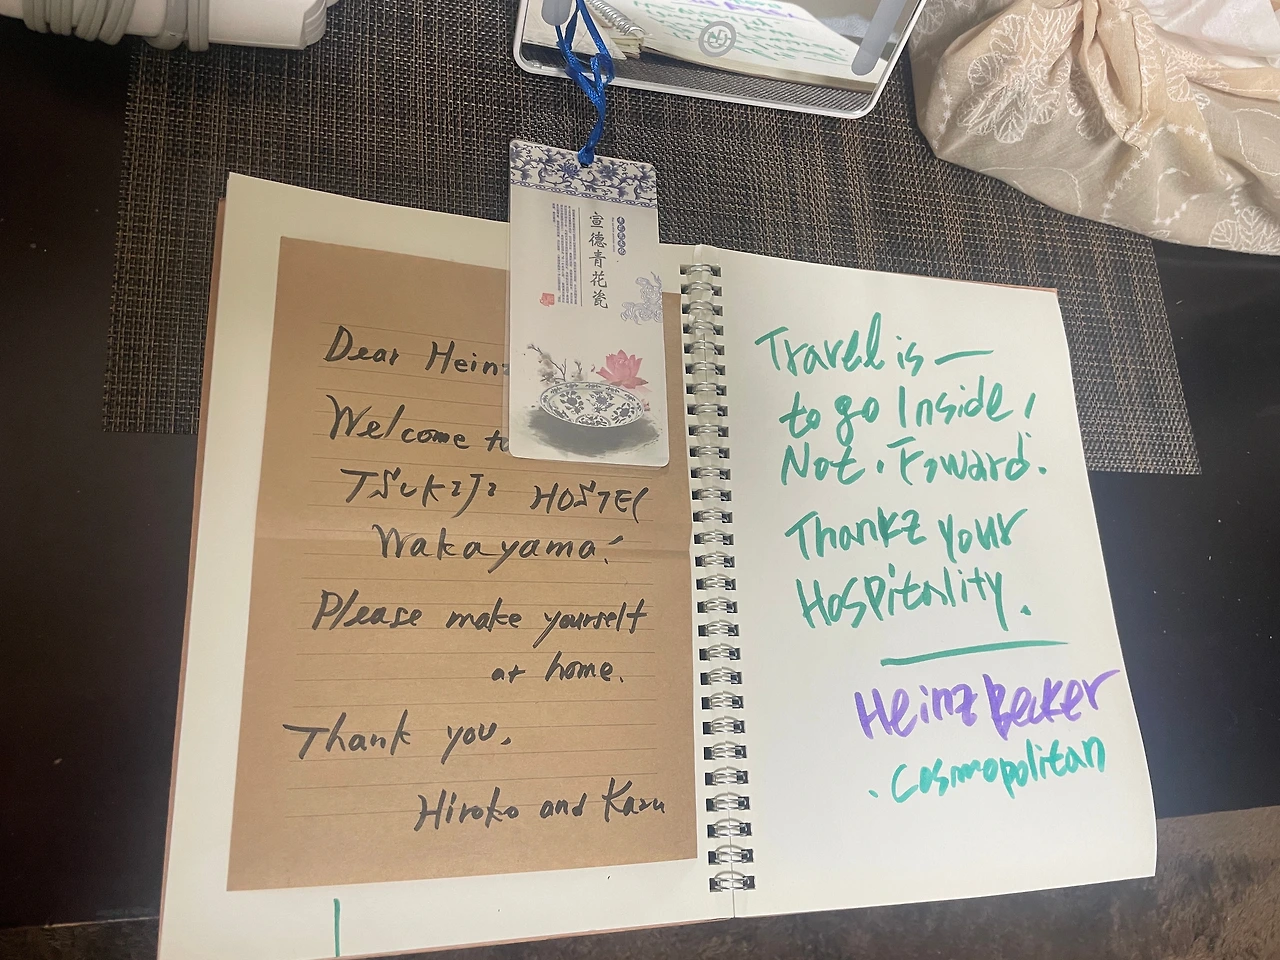 宣德青花瓷
Dear Heinz
Welcome to
TSUKIJI HOSTEL
Wakayama!
Please make yourself
at home.
Thank you.
Hiroko and Kazu
Travel is —
to go Inside,
Not. Foward.
Thankz your
Hospitality.
Heinz Becker
. Cosmopolitan